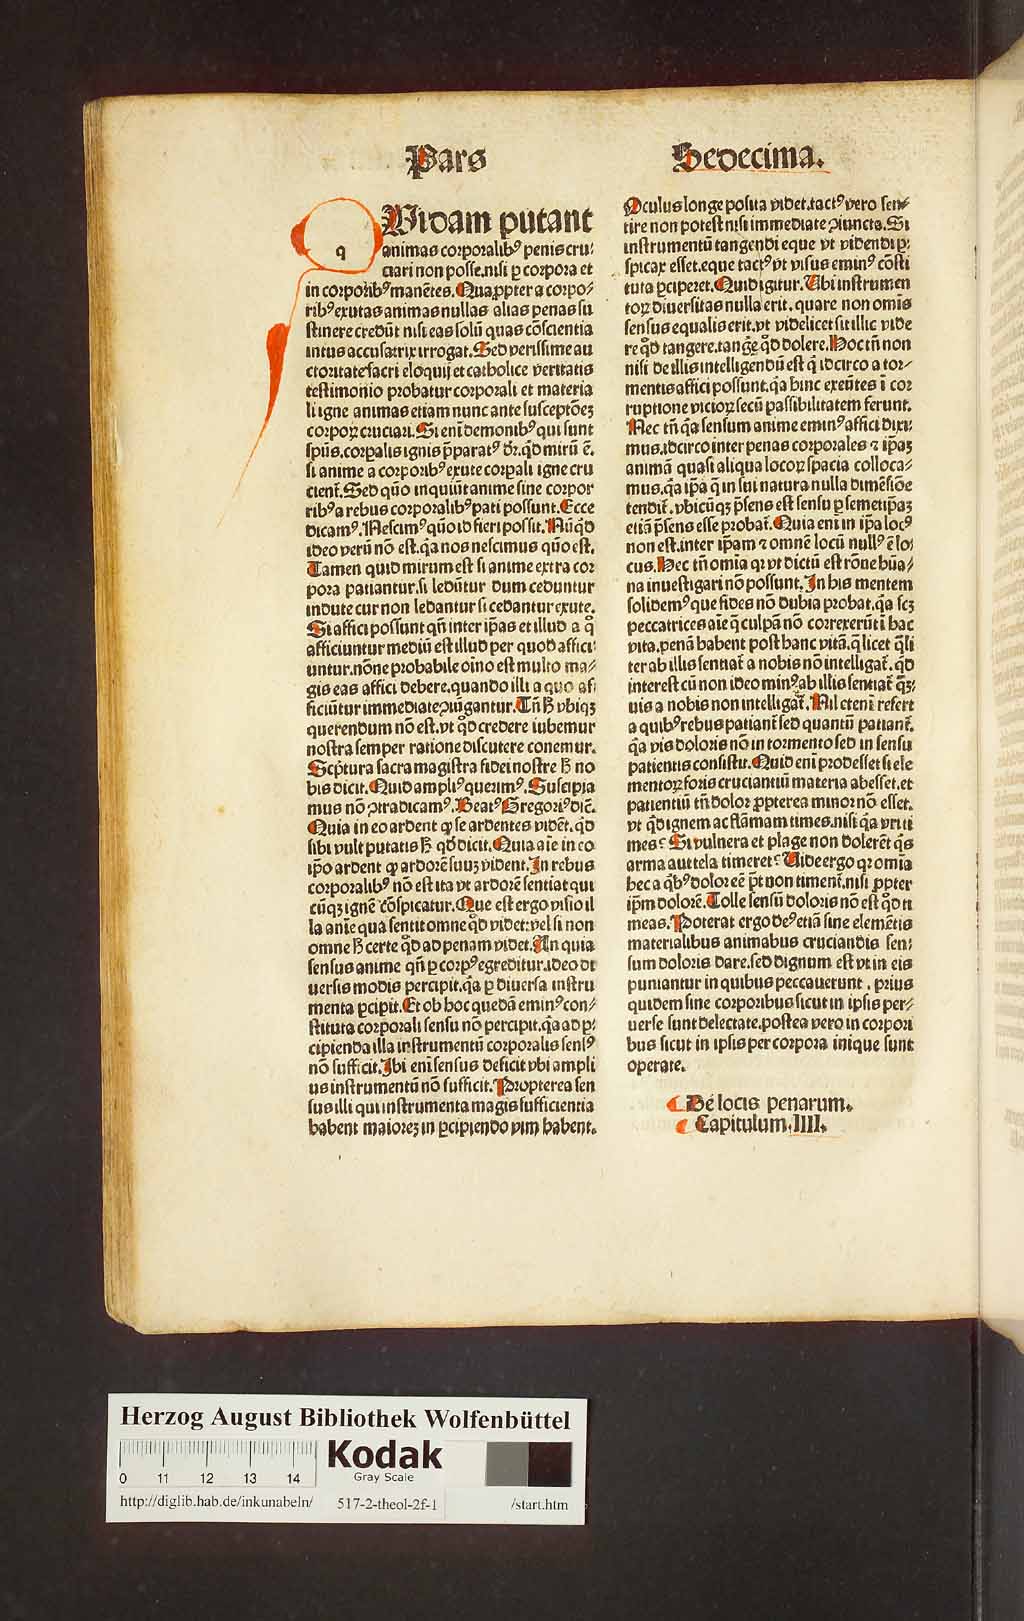 Pars
Sedecima.
q
QUidam putant
animas corporalibꝰ penis cru⸗
ciari non posse.nisi ꝑ corpora et
in corporibꝰ manẽtes. Quaꝓpter a corpo⸗
ribꝰ exutas animas nullas alias penas su
stinere credũt nisi eas solũ quas cõscientia
intus accusatrix irrogat. Sed verissime au
ctoritate sacri eloquij et catholice veritatis
testimonio probatur corporali et materia
li igne animas etiam nunc ante susceptõeꝫ
corpoꝝ cruciari. Si em̃ demonibꝰ qui sunt
spũs.corꝑalis ignis p̃paratꝰ dr̃.qd̃ mirũ ẽ.
si anime a corporibꝰ exute corꝑali igne cru
cient̃. Sed quõ inquiũt anime sine corpor
ribꝰ a rebus corporalibꝰ pati possunt. Ecce
dicamꝰ. Nescimꝰ quõ id fieri possit. Nũ qd̃
ideo verũ nõ est.q̃a nos nescimus quõ est.
Tamen quid mirum est si anime extra cor
pora patiantur.si ledũtur dum ceduntur
indute cur non ledantur si cedantur exute.
Si affici possunt qñ inter ip̃as et illud a q̊
afficiuntur mediũ est illud per quod affici
untur.nõne probabile oĩno est multo ma⸗
gis eas affici debere.quando illi a quo af
ficiũtur immediate ꝯiũgantur. Tñ ꝭ vbiqꝫ
querendum nõ est.vt qd̃ credere iubemur
nostra semper ratione discutere conemur.
Scp̃tura sacra magistra fidei nostre ꝭ no
bis dicit. Quid amplꝰ querimꝰ. Suscipia
mus nõ ꝯtradicamꝰ. Beatꝰ Gregoriꝰ dic̃.
Quia in eo ardent ꝙ se ardentes vidẽt.qd̃
sibi vult putatis ꝭ qd̃ dicit. Quia aĩe in eo
ip̃o ardent ꝙ ardorẽ suuꝫ vident. In rebus
corporalibꝰ nõ est ita vt ardorẽ sentiat qui
cũqꝫ ignẽ cõspicatur. Que est ergo visio il
la anĩe qua sentit omne qd̃ videt:vel si non
omne ꝭ certe qd̃ ad penam videt. An quia
sensus anime qñ ꝑ corpꝰ egreditur.ideo di
uersis modis percipit.q̃a ꝑ diuersa instru
menta ꝑcipit. Et ob hoc quedã eminꝰ con⸗
stituta corporali sensu nõ percipit.q̃a ad ꝑ⸗
cipienda illa instrumentũ corporalis sensꝰ
nõ sufficit. Ibi em̃ sensus deficit vbi ampli
us instrumentũ nõ sufficit. Propterea sen
sus illi qui instrumenta magis sufficientia
habent maioreꝫ in ꝑcipiendo vim habent.
Oculus longe posita videt.tactꝰ vero sen⸗
tire non potest nisi immediate ꝯiuncta. Si
instrumentũ tangendi eque vt videndi ꝑ⸗
spicax esset.eque tactꝰ vt visus eminꝰ cõsti
tuta ꝑciperet. Quid igitur. Ubi instrumen
toꝝ diuersitas nulla erit.quare non omis̃
sensus equalis erit.vt videlicet sit illic vide
re qd̃ tangere.tangẽ qd̃ dolere. Hoc tñ non
nisi de illis intelligendũ est q̃ idcirco a tor⸗
mentis affici possunt.q̃a hinc exeũtes ĩ cor
ruptione vicioꝝ secũ passibilitatem ferunt.
Nec tñ q̃a sensum anime em̃inꝰ affici dixi⸗
mus.idcirco inter penas corporales ⁊ ip̃aꝫ
animã quasi aliqua locoꝝ spacia colloca⸗
mus.q̃a ip̃a q̃ in sui natura nulla dimẽsiõe
tendit̃.vbicũqꝫ p̃sens est sensu ꝑ semetip̃aꝫ
etiã p̃sens esse probat̃. Quia em̃ in ip̃a locꝰ
non est.inter ip̃am ⁊ omnẽ locũ nullꝰ ẽ lo⸗
cus. Hec tñ omĩa qr̃ vt dictũ est rõne hũa⸗
na inuestigari nõ possunt. In his mentem
solidemꝰ que fides nõ dubia probat.q̃a scꝫ
peccatrices aĩe q̃ culpã nõ correxerũt ĩ hac
vita.penã habent post hanc vitã.q̃ licet q̃li
ter ab illis sentiat̃ a nobis nõ intelligat̃.qd̃
interest cũ non ideo minꝰ ab illis sentiat̃ q̃ꝫ⸗
uis a nobis non intelligat̃. Nil etem̃ refert
a quibꝰ rebus patiant̃ sed quantũ patiant̃.
q̃a vis doloris nõ in tormento sed in sensu
patientis consistit. Quid em̃ prodesset si ele
mentoꝝ foris cruciantiũ materia abesset.et
patientiũ tñ dolor ꝓpterea minor nõ esset.
vt qd̃ ignem ac flãmam times.nisi q̃a vri ti
mes? Si vulnera et plage non dolerẽt q̃s
arma aut tela timeret? Uide ergo qr̃ omĩa
hec a qb̃ꝰ dolor eẽ p̃t non timent̃.nisi ꝓpter
ip̃m dolorẽ. Tolle sensũ doloris nõ est qd̃ ti
meas. Poterat ergo deꝰ etiã sine elemẽtis
materialibus animabus cruciandis sen⸗
sum doloris dare.sed dignum est vt in eis
puniantur in quibus peccauerunt. prius
quidem sine corporibus sicut in ipsis per⸗
uerse sunt delectate.postea vero in corpori
bus sicut in ipsis per corpora inique sunt
operate.
De locis penarum.
Capitulum.IIII.
Herzog August Bibliothek Wolfenbüttel
Kodak
Gray Scale
0 11 12 13 14
http://diglib.hab.de/inkunabeln/ 517-2-theol-2f-1 /start.htm